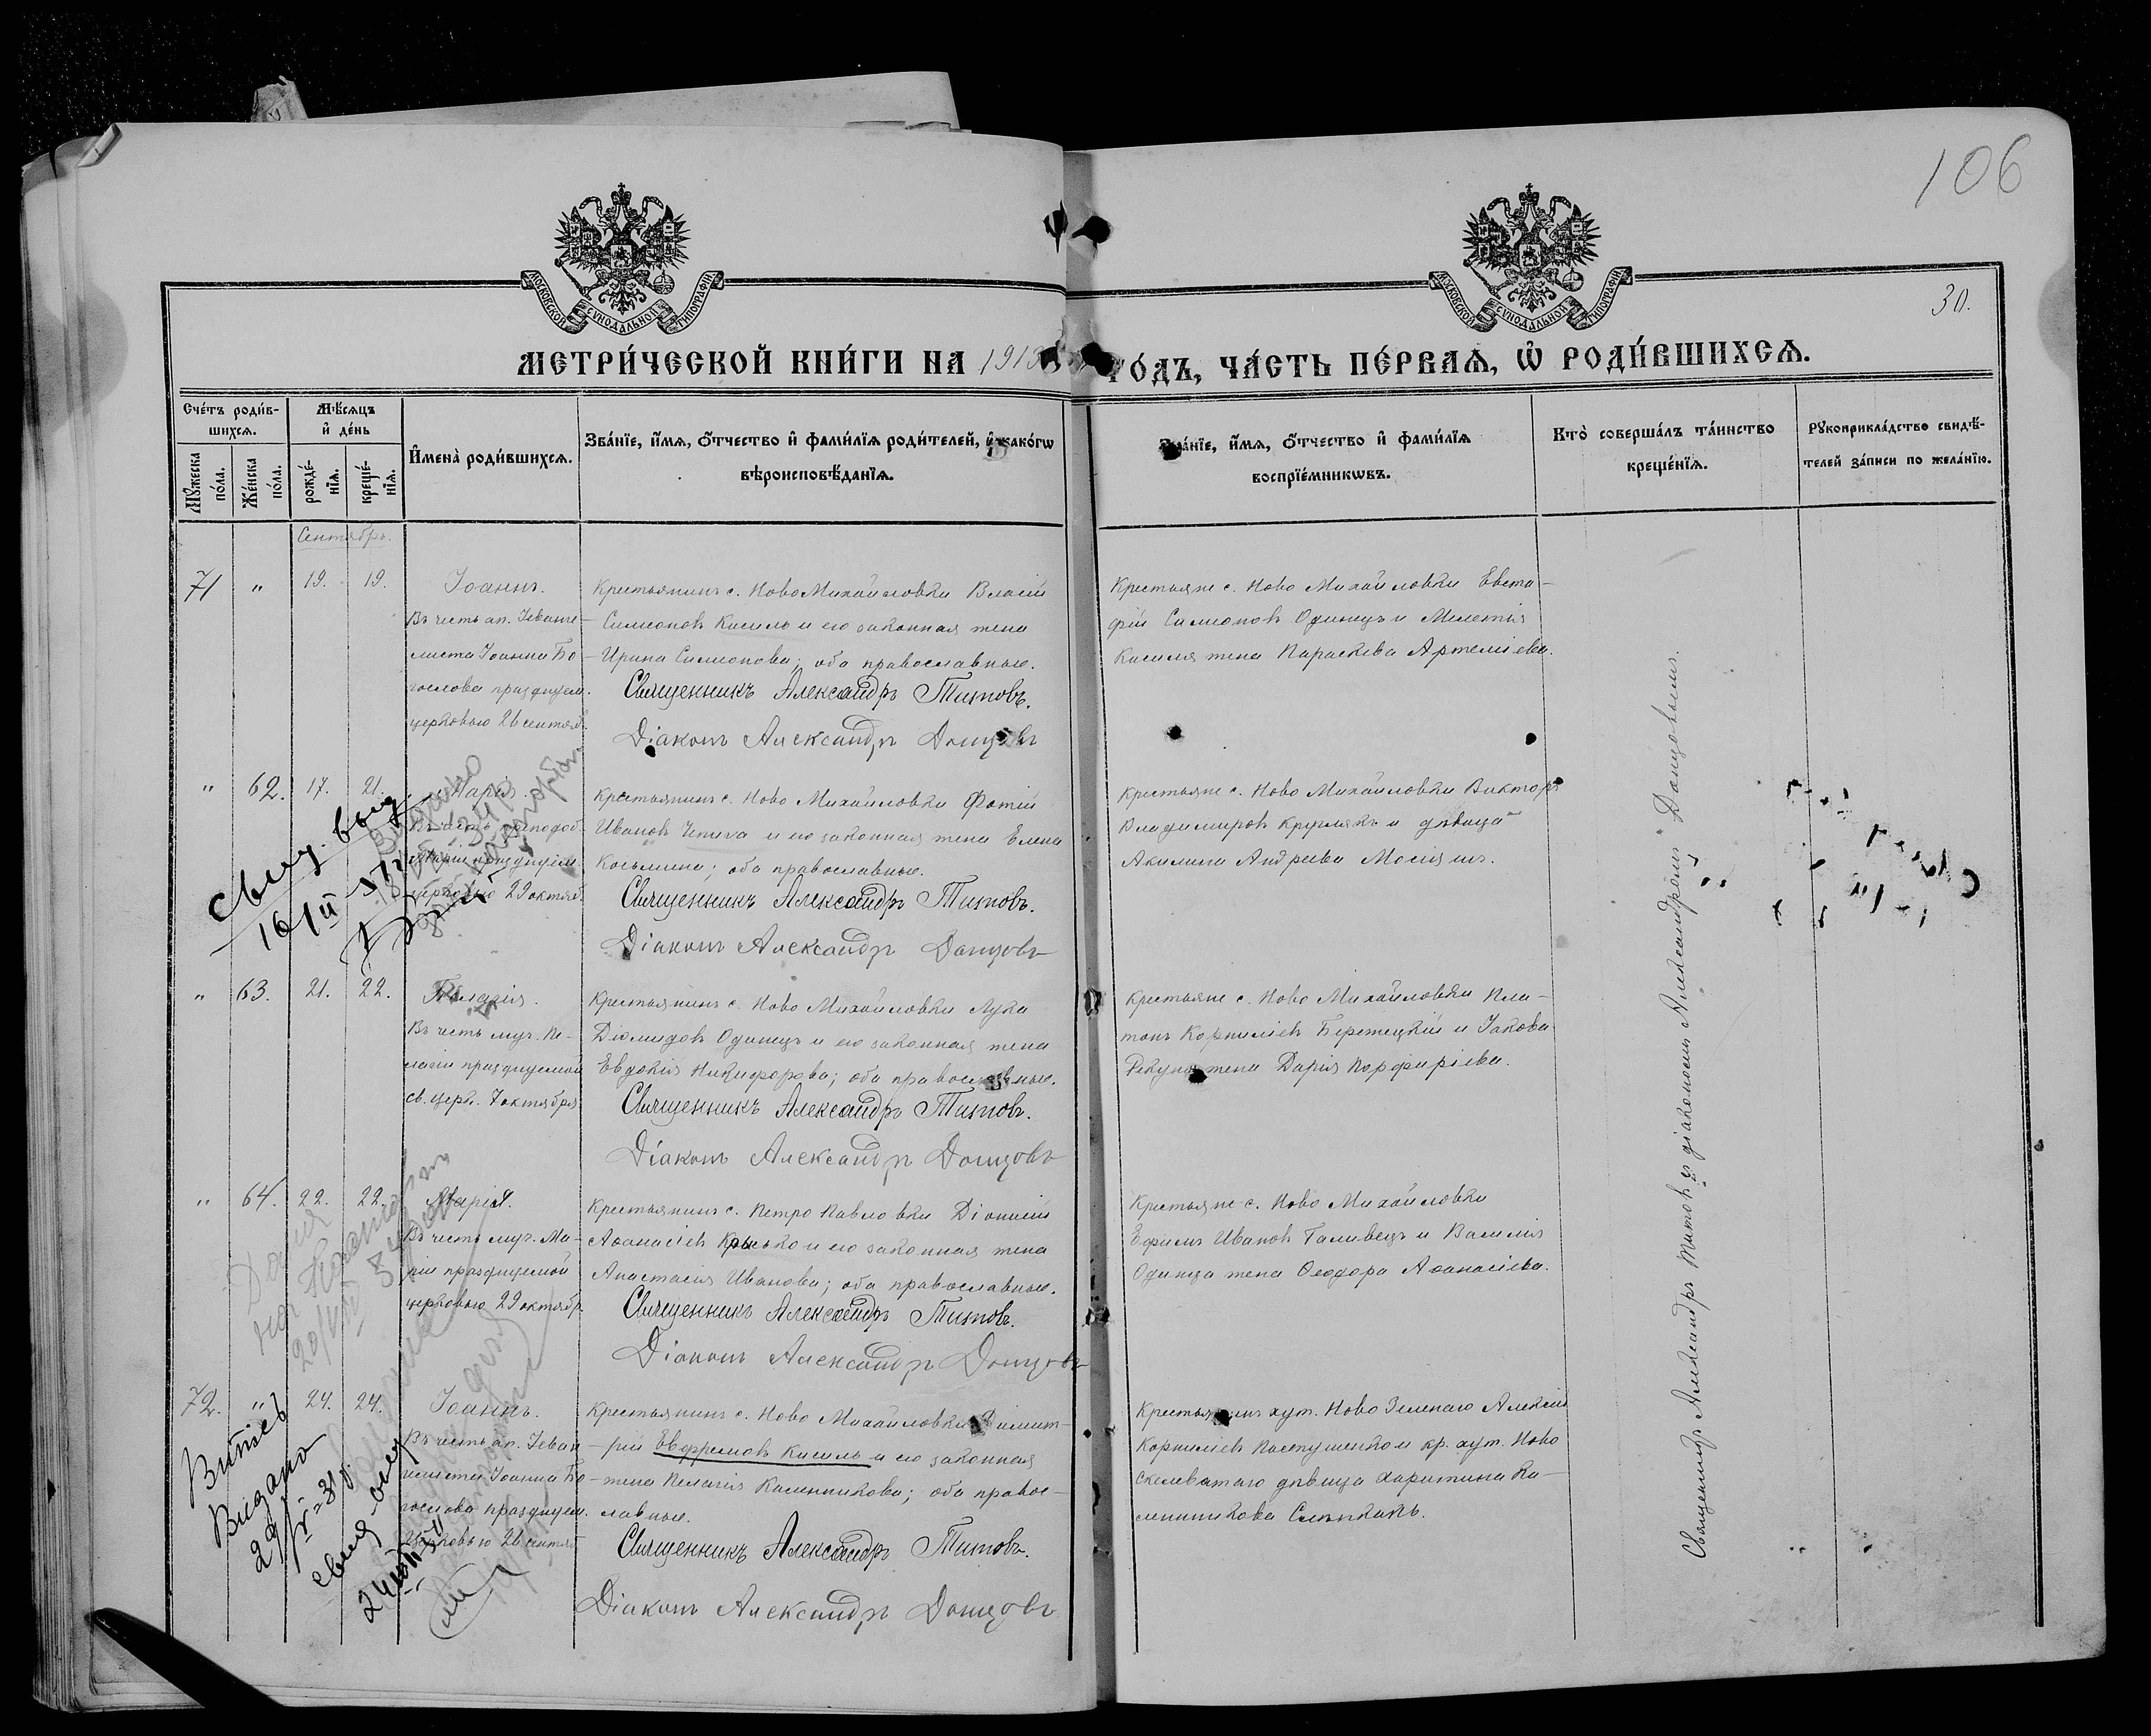 106
МОСКОВСКОЙ СѴНОДАЛЬНОЙ ТИПОГРАФІИ
МОСКОВСКОЙ СѴНОДАЛЬНОЙ ТИПОГРАФІИ
30.
МЕТРИ́ЧЕСКОЙ КНИ́ГИ НА 191
ГО́ДЪ, ЧА́СТЬ ПЕ́РВАЯ, Ѡ҆ РОДИ́ВШИХСЯ.
Сче́тъ роди́в-
шихся.
Мѣ́сяцъ
и҆ де́нь
И҆мена̀ роди́вшихся.
Зва́нїе, и҆́мя, ѻ҆́тчество и҆ фами́лїя роди́телей, и҆ како́гѡ
вѣроисповѣ́данїя.
Му́жеска по́ла.
Же́нска по́ла.
рожде́-
нїя.
креще́-
нїя.
Зва́нїе, и҆́мя, ѻ҆́тчество и҆ фами́лїя
воспрїе́мникѡвъ.
Кто̀ соверша́лъ та́инство
креще́нїя.
Рукоприкла́дство свидѣ́-
телей за́писи по жела́нїю.
Сентябрь.
71 " 19. 19. Іоаннъ.
Въ честь ап. Іеванге-
листа Іоанна Бо-
гослова празднуем.
церковью 26 сентяб.
Крестьянинъ с. Ново Михайловки Власій
Симеоновъ Кисиль и его законная жена
Ирина Симионова; оба православные.
Священникъ Александръ Титовъ.
Діаконъ Александръ Донцовъ
Крестьяне с. Ново Михайловки Евста-
фій Симионовъ Одинецъ и Мелетія
Кисиля жена Параскева Артеміева.
" 62. 17. 21. Марія.
Въ честь преподоб.
Маріи празднуем.
церковью 29 октяб.
Крестьянинъ с. Ново Михайловки Фотій
Ивановъ Чепига и его законная жена Елена
Косьмина; оба православные.
Священникъ Александръ Титовъ.
Діаконъ Александръ Донцовъ
Крестьяне с. Ново Михайловки Викторъ
Владимировъ Круглякъ и дѣвица
Акилина Андреева
свид. выд.
16/II
" 63. 21. 22. Пелагія.
Въ честь муч. Пе-
лагіи празднуемой
св. церк. 7 октября
Крестьянинъ с. Ново Михайловки Лука
Діомидовъ Одинецъ и его законная жена
Евдокія Никифорова; оба православные.
Священникъ Александръ Титовъ.
Діаконъ Александръ Донцовъ
Крестьяне с. Ново Михайловки Пла-
тонъ Корниліевъ Бережецкій и Іакова
Рекуна жена Дарія Порфиріева.
" 64. 22. 22. Марія.
Въ честь муч. Ма-
ріи празднуемой
церковью 29 октябр.
Крестьянинъ с. Петро Павловки Діонисій
Аѳанасіевъ Крысько и его законная жена
Анастасія Иванова; оба православные.
Священникъ Александръ Титовъ.
Діаконъ Александръ Донцовъ
Крестьяне с. Ново Михайловки
Ефимъ Ивановъ Галивецъ и Василія
Одинца жена Ѳеодора Аѳанасіева.
72. " 24. 24. Іоаннъ.
Въ честь ап. Іеван-
гелиста Іоанна Бо-
гослова празднуем.
церковью 26 сентяб.
Крестьянинъ с. Ново Михайловки Димит-
рій Евфремовъ Кисиль и его законная
жена Пелагія Калинникова; оба правос-
лавные.
Священникъ Александръ Титовъ.
Діаконъ Александръ Донцовъ
Крестьянинъ хут. Ново Зеленаго Алексій
Корниліевъ Пастушенко и кр. хут. Ново
Скелеватаго дѣвица Харитина Ка-
линникова
Витяг
Видано
Священникъ Александръ Титовъ съ діакономъ Александромъ Донцовымъ.